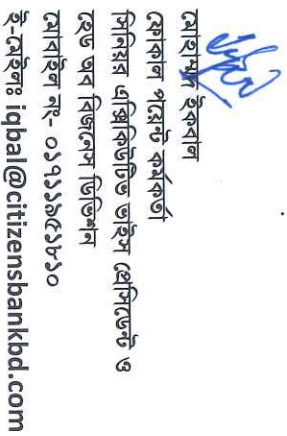 মোহাম্মদ ইকবাল
ফোকাল পয়েন্ট কর্মকর্তা
সিনিয়র এক্সিকিউটিভ ভাইস প্রেসিডেন্ট ও
হেড অব বিজনেস ডিভিশন
মোবাইল নং- ০১৭১১৯৫১৮১০
ই-মেইলঃ iqbal@citizensbankbd.com